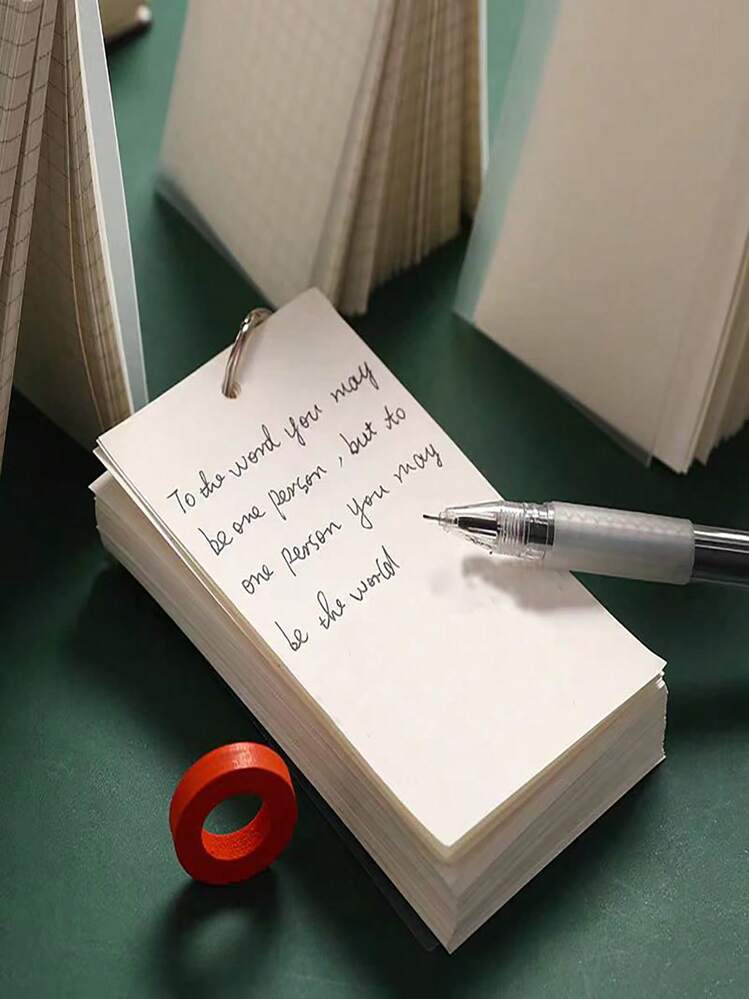 To the word you may
be one person, but to
one person you may
be the world